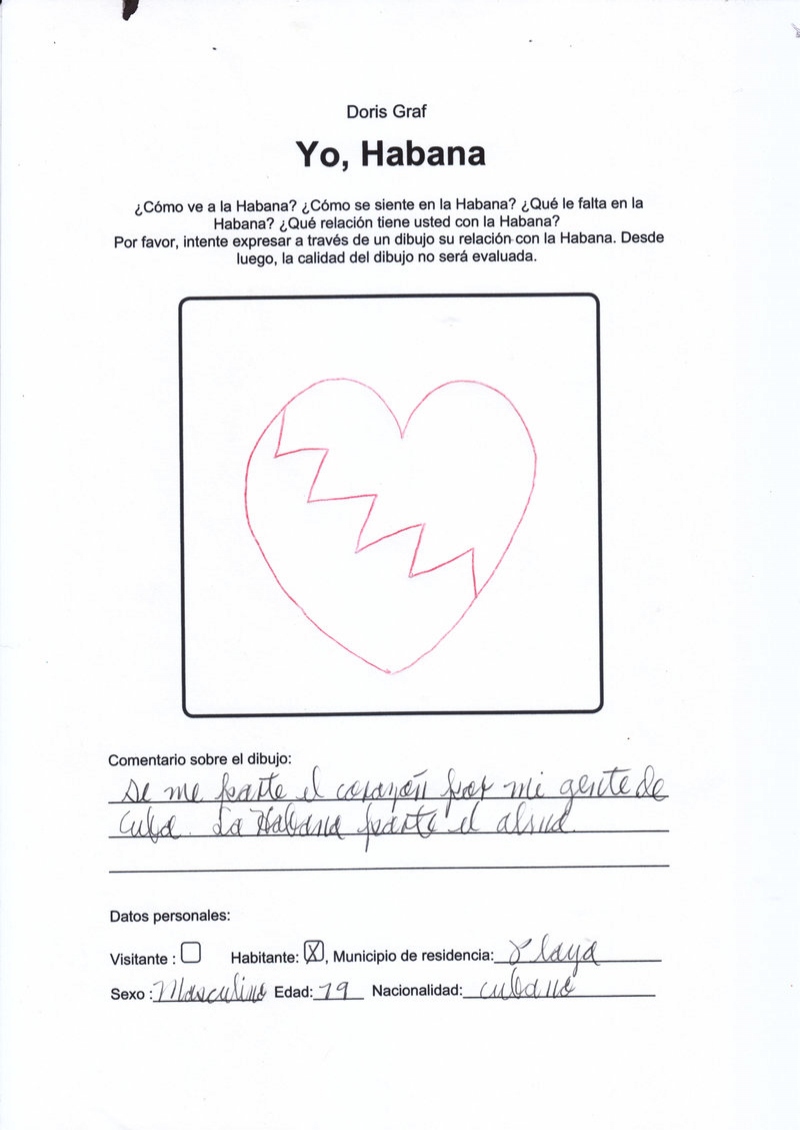 Doris Graf
Yo, Habana
¿Cómo ve a la Habana? ¿Cómo se siente en la Habana? ¿Qué le falta en la
Habana? ¿Qué relación tiene usted con la Habana?
Por favor, intente expresar a través de un dibujo su relación con la Habana. Desde
luego, la calidad del dibujo no será evaluada.
Comentario sobre el dibujo:
Se me parte el corazón por mi gente de
Cuba. La Habana parte el alma.
Datos personales:
Visitante : Habitante: X, Municipio de residencia: Playa
Sexo : Masculino Edad: 79 Nacionalidad: cubano